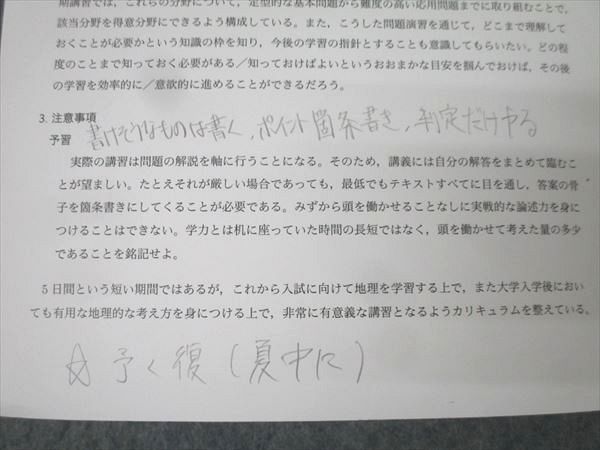 期講習では，これらの分野について，定型的な基本問題から難度の高い応用問題までに取り組むことで，
該当分野を得意分野にできるよう構成している。また，こうした問題演習を通じて，どこまで理解して
おくことが必要かという知識の枠を知り，今後の学習の指針とすることも意識してもらいたい。どの程
度のことまで知っておく必要がある／知っておけばよいというおおまかな目安を掴んでおけば，その後
の学習を効率的に／意欲的に進めることができるだろう。
3. 注意事項
予習 書けそうなものは書く，ポイント箇条書き，判定だけやる
実際の講習は問題の解説を軸に行うことになる。そのため，講義には自分の解答をまとめて臨むこ
とが望ましい。たとえそれが厳しい場合であっても，最低でもテキストすべてに目を通し，答案の骨
子を箇条書きにしてくることが必要である。みずから頭を働かせることなしに実戦的な論述力を身に
つけることはできない。学力とは机に座っていた時間の長短ではなく，頭を働かせて考えた量の多少
であることを銘記せよ。
5日間という短い期間ではあるが，これから入試に向けて地理を学習する上で，また大学入学後におい
ても有用な地理的な考え方を身につける上で，非常に有意義な講習となるようカリキュラムを整えている。
☆ 予＜復（夏中に）